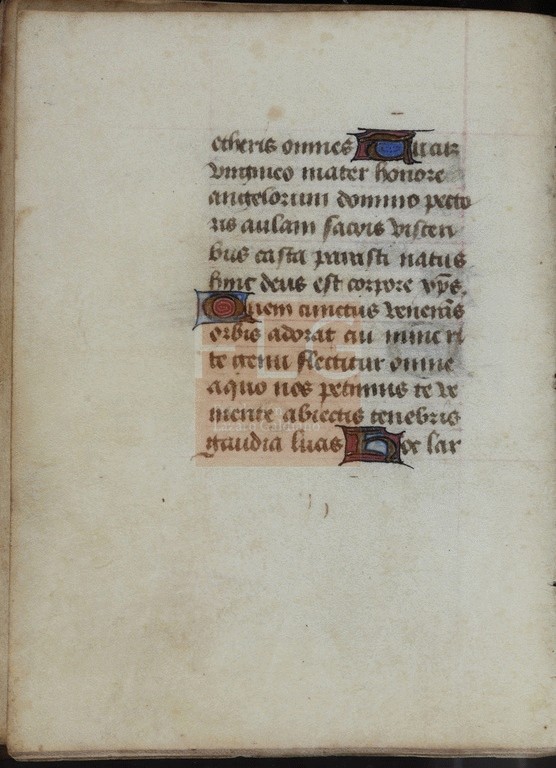 etheris omnes Tu cuz
virgineo mater honore
angelorum domino pecto
ris aulam sacris viscen
bus casta parasti natus
hinc deus est corpore xp̄s.
Quem cunctus venerās
orbis adorat cui nunc ri
te genu flectitur omne
a quo nos petimus te ve
niente abiectis tenebris
gaudia lucis Hoc lar